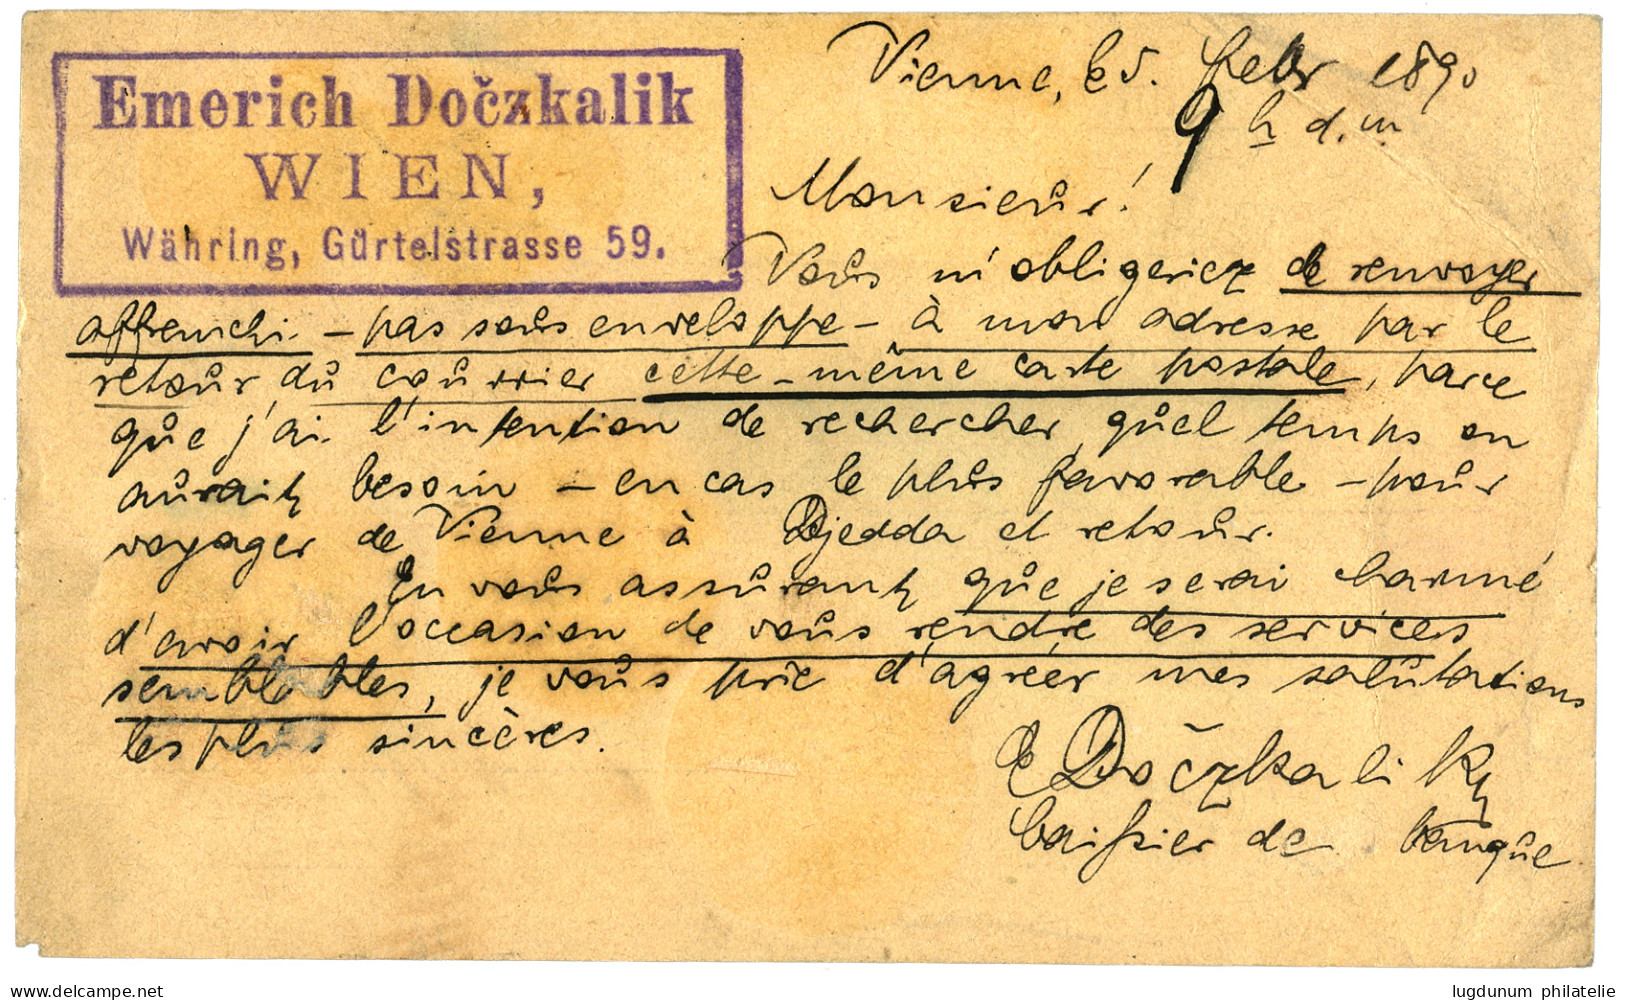 Emerich Dočzkalik
WIEN,
Währing, Gürtelstrasse 59.
Vienne, le 5. Febr 1890
9 h d. m.
Monsieur!
Vous m'obligeriez de renvoyer
affrenchi - pas sous enveloppe - à mon adresse par le
retour du courrier cette-même carte postale, parce
que j'ai l'intention de rechercher quel temps on
aurait besoin - en cas le plus favorable - pour
voyager de Vienne à Djedda et retour.
En vous assurant que je serai charmé
d'avoir l'occasion de vous rendre des services
semblables, je vous prie d'agréer mes salutations
les plus sincères.
E Dočzkalik
Caissier de banque
www.delcampe.net
lugdunum philatelie